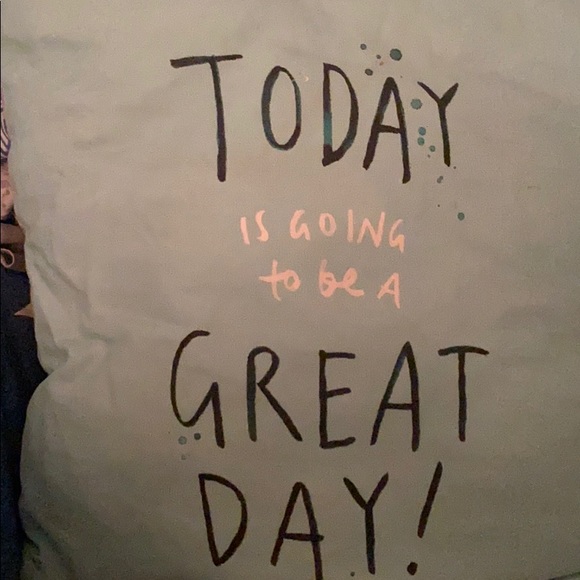 TODAY
IS GOING
to be A
GREAT
DAY!